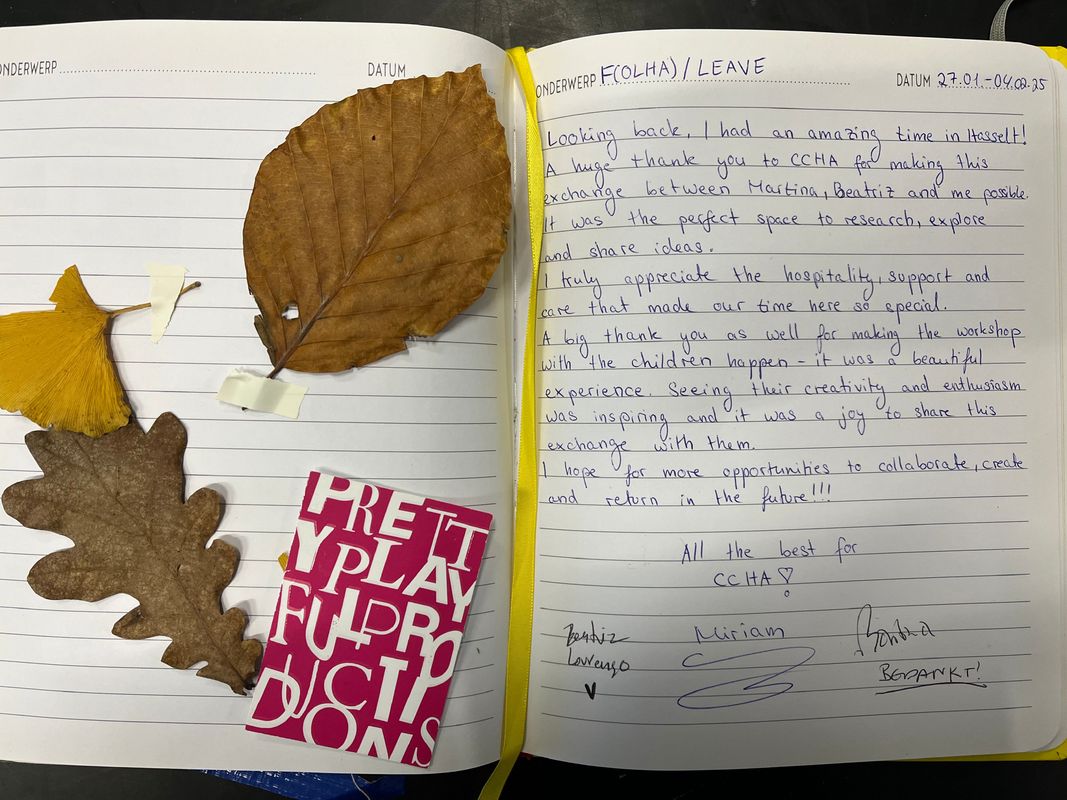 ONDERWERP
DATUM
PRETT
Y PLAY
FUL PRO
DUCTI
ONS
ONDERWERP F(OLHA) / LEAVE
DATUM 27.01.-04.02.25
Looking back, I had an amazing time in Hasselt!
A huge thank you to CCHA for making this
exchange between Martina, Beatriz and me possible.
It was the perfect space to research, explore
and share ideas.
I truly appreciate the hospitality, support and
care that made our time here so special.
A big thank you as well for making the workshop
with the children happen - it was a beautiful
experience. Seeing their creativity and enthusiasm
was inspiring and it was a joy to share this
exchange with them.
I hope for more opportunities to collaborate, create
and return in the future!!!
All the best for
CCHA!
Beatriz
Lourenço
Miriam
BEDANKT!